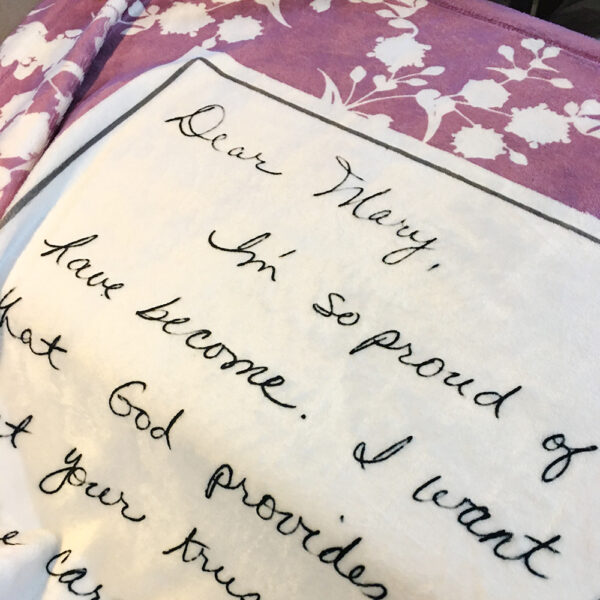 Dear Mary,
I'm so proud of
have become. I want
that God provides
t your trus
e car